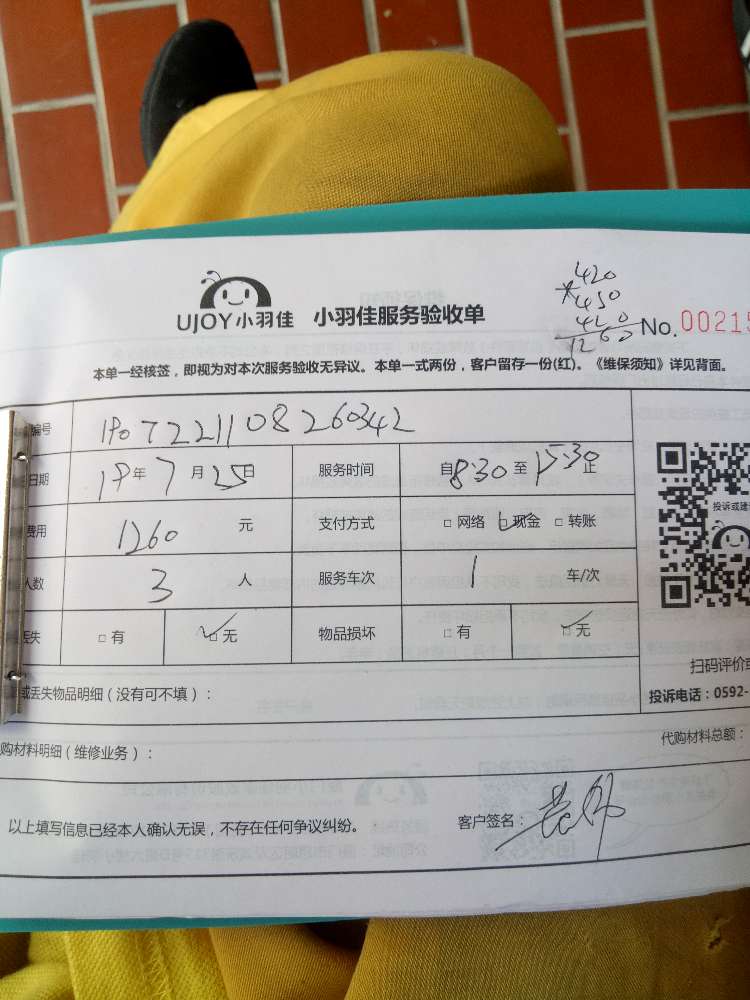 420
*450
UJOY小羽佳 小羽佳服务验收单
1260 No.00215
本单一经核签，即视为对本次服务验收无异议。本单一式两份，客户留存一份(红)。《维保须知》详见背面。
编号 1907221108260342
日期 19年7月25日 服务时间 自8:30至15:30止
费用 1260 元 支付方式 □网络 □现金 □转账
人数 3 人 服务车次 1 车/次
丢失 □有 □无 物品损坏 □有 □无
投诉或建
扫码评价或
或丢失物品明细（没有可不填）：
投诉电话：0592-
购材料明细（维修业务）： 代购材料总额：
以上填写信息已经本人确认无误，不存在任何争议纠纷。 客户签名：